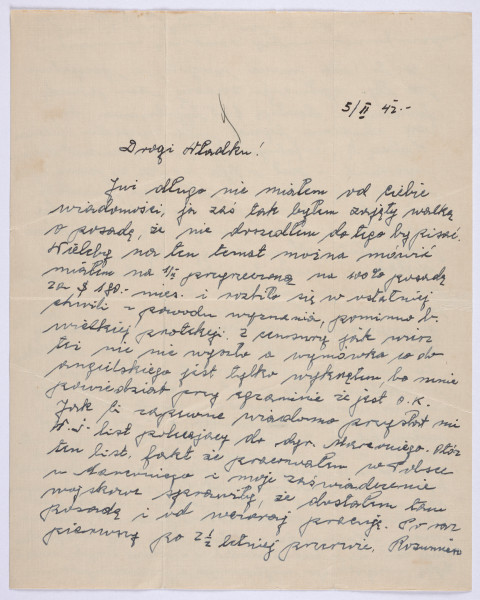 5/II 42.-
Drogi Władku!
Już długo nie miałem od Ciebie
wiadomości, ja zaś tak byłem zajęty walką
o posadę, że nie doszedłem do tego by pisać.
Wieleby na ten temat można mówić
miałem na 1/I na 100% posadę
za $ 180.- mies. i rozbiło się w ostatniej
chwili z powodu wyznania, pomimo b.
wielkiej protekcji. Z cenzurą jak wiesz
też nic nie wyszło a wymówka co do
angielskiego jest tylko wykrętem, bo mnie
powiedział przy egzaminie że jest O.K.
Jak Ci zapewne wiadomo przysłał mi
W.J. list polecający do dyr. Marconiego. Otóż
ten list, fakt że pracowałem w Polsce
w Marconiego i moje zaświadczenie
wojskowe sprawiły, że dostałem tam
posadę i od wczoraj pracuję. Po raz
pierwszy po 2 1/2 letniej przerwie. Rozumiesz